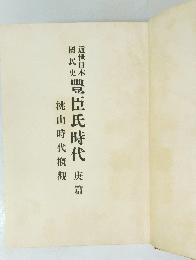 近世日本國民史
豐臣氏時代 庚篇
桃山時代概觀